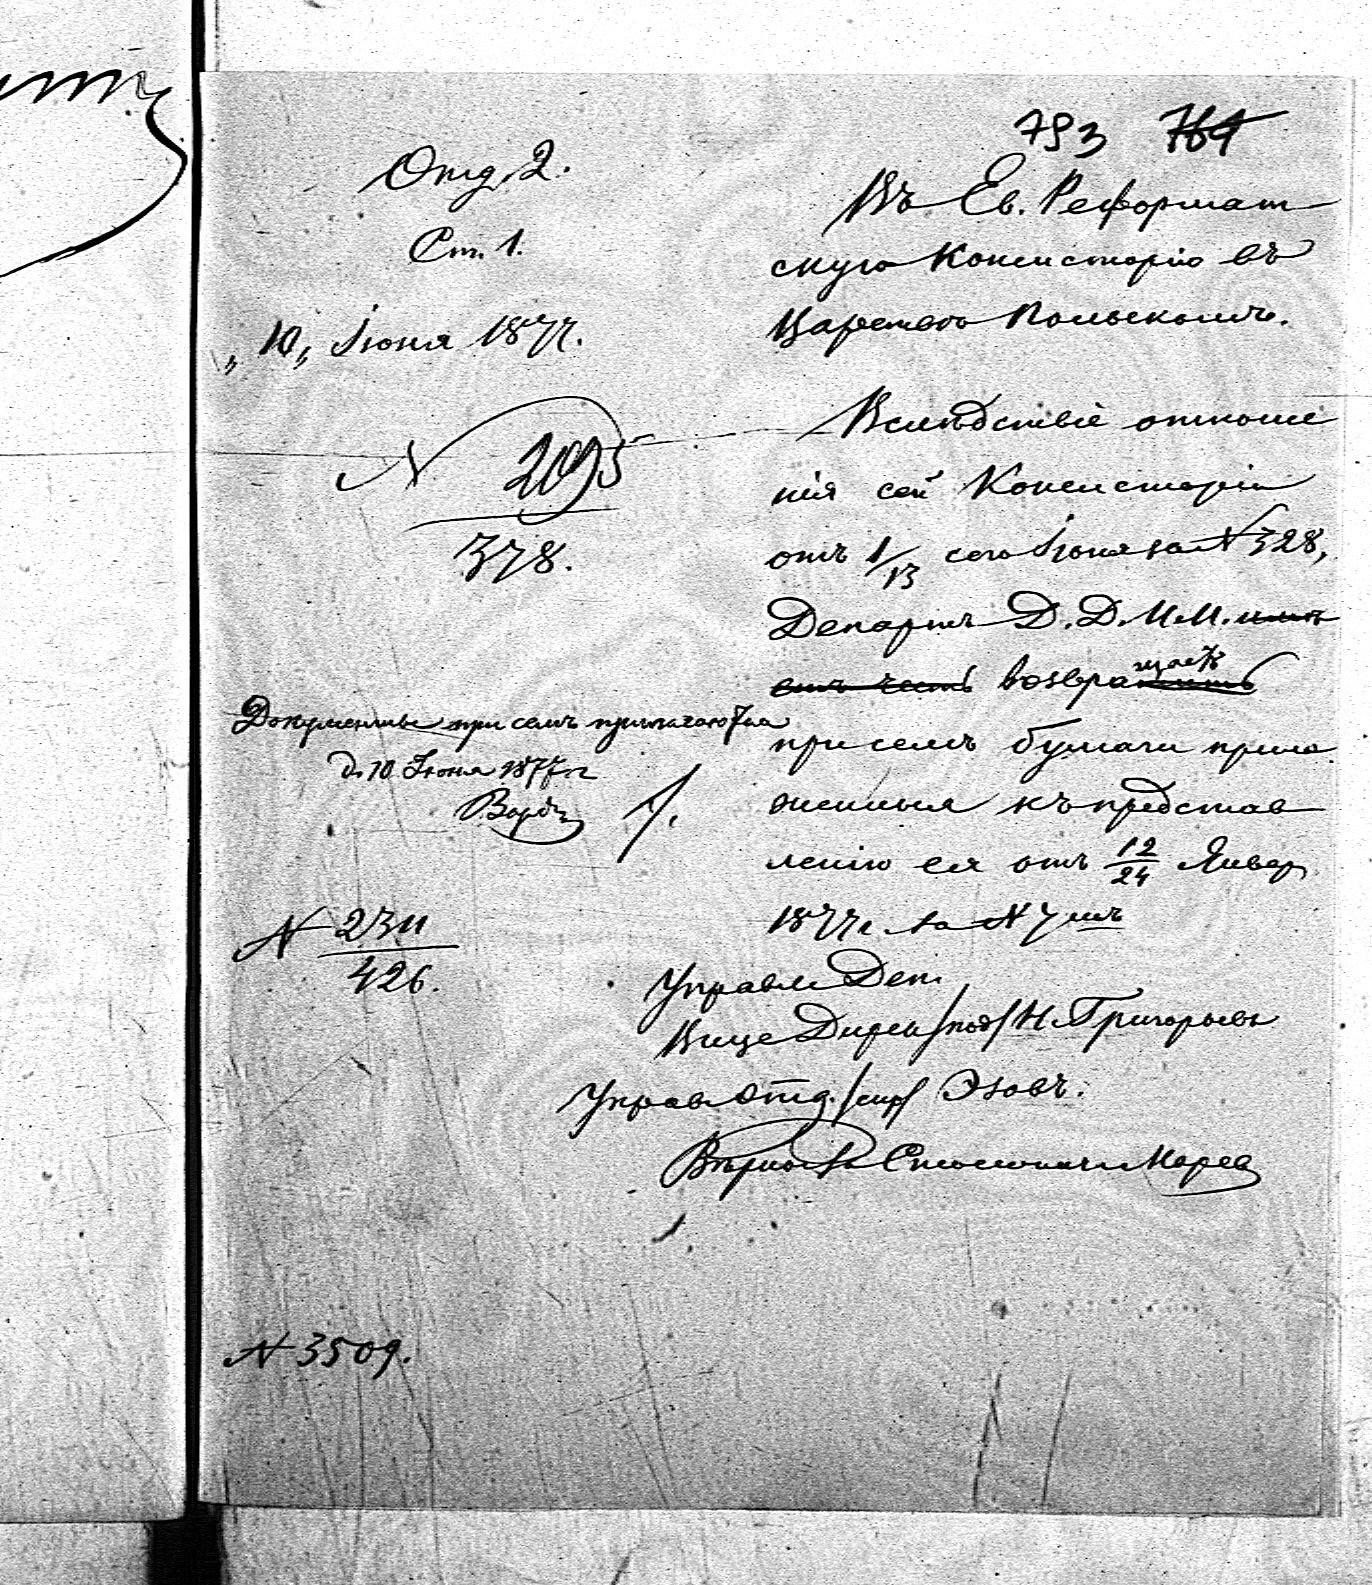 793 764
Отд. 2.
Ст. 1.
„10„ Іюня 1877.
N 2095
378.
Въ Ев. Реформат
скую Консисторію въ
Царствѣ Польскомъ.
Вслѣдствіе отноше
нія сей Консисторіи
отъ 1/13 сего Іюня за N 328,
Департъ Д. Д. И. И. имѣ
етъ честь возвращаетъ
при семъ бумаги прило
женныя къ представ
ленію ея отъ 12/24 Январ
1877 г. за N 7
Документы при семъ прилагаются
д. 10 Іюня 1877 г.
N 2311
426.
Управл Деп.
Вице Дирек /под/ Н. Григорьевъ
Управ Отд. /скр/ Эзовъ.
Вѣрно
N 3509.